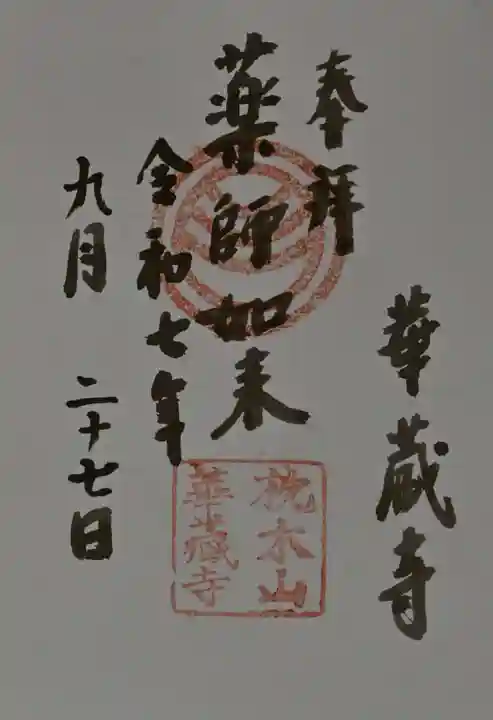 奉拝
華蔵寺
薬師如来
令和七年
九月 二十七日
枕木山
華蔵寺